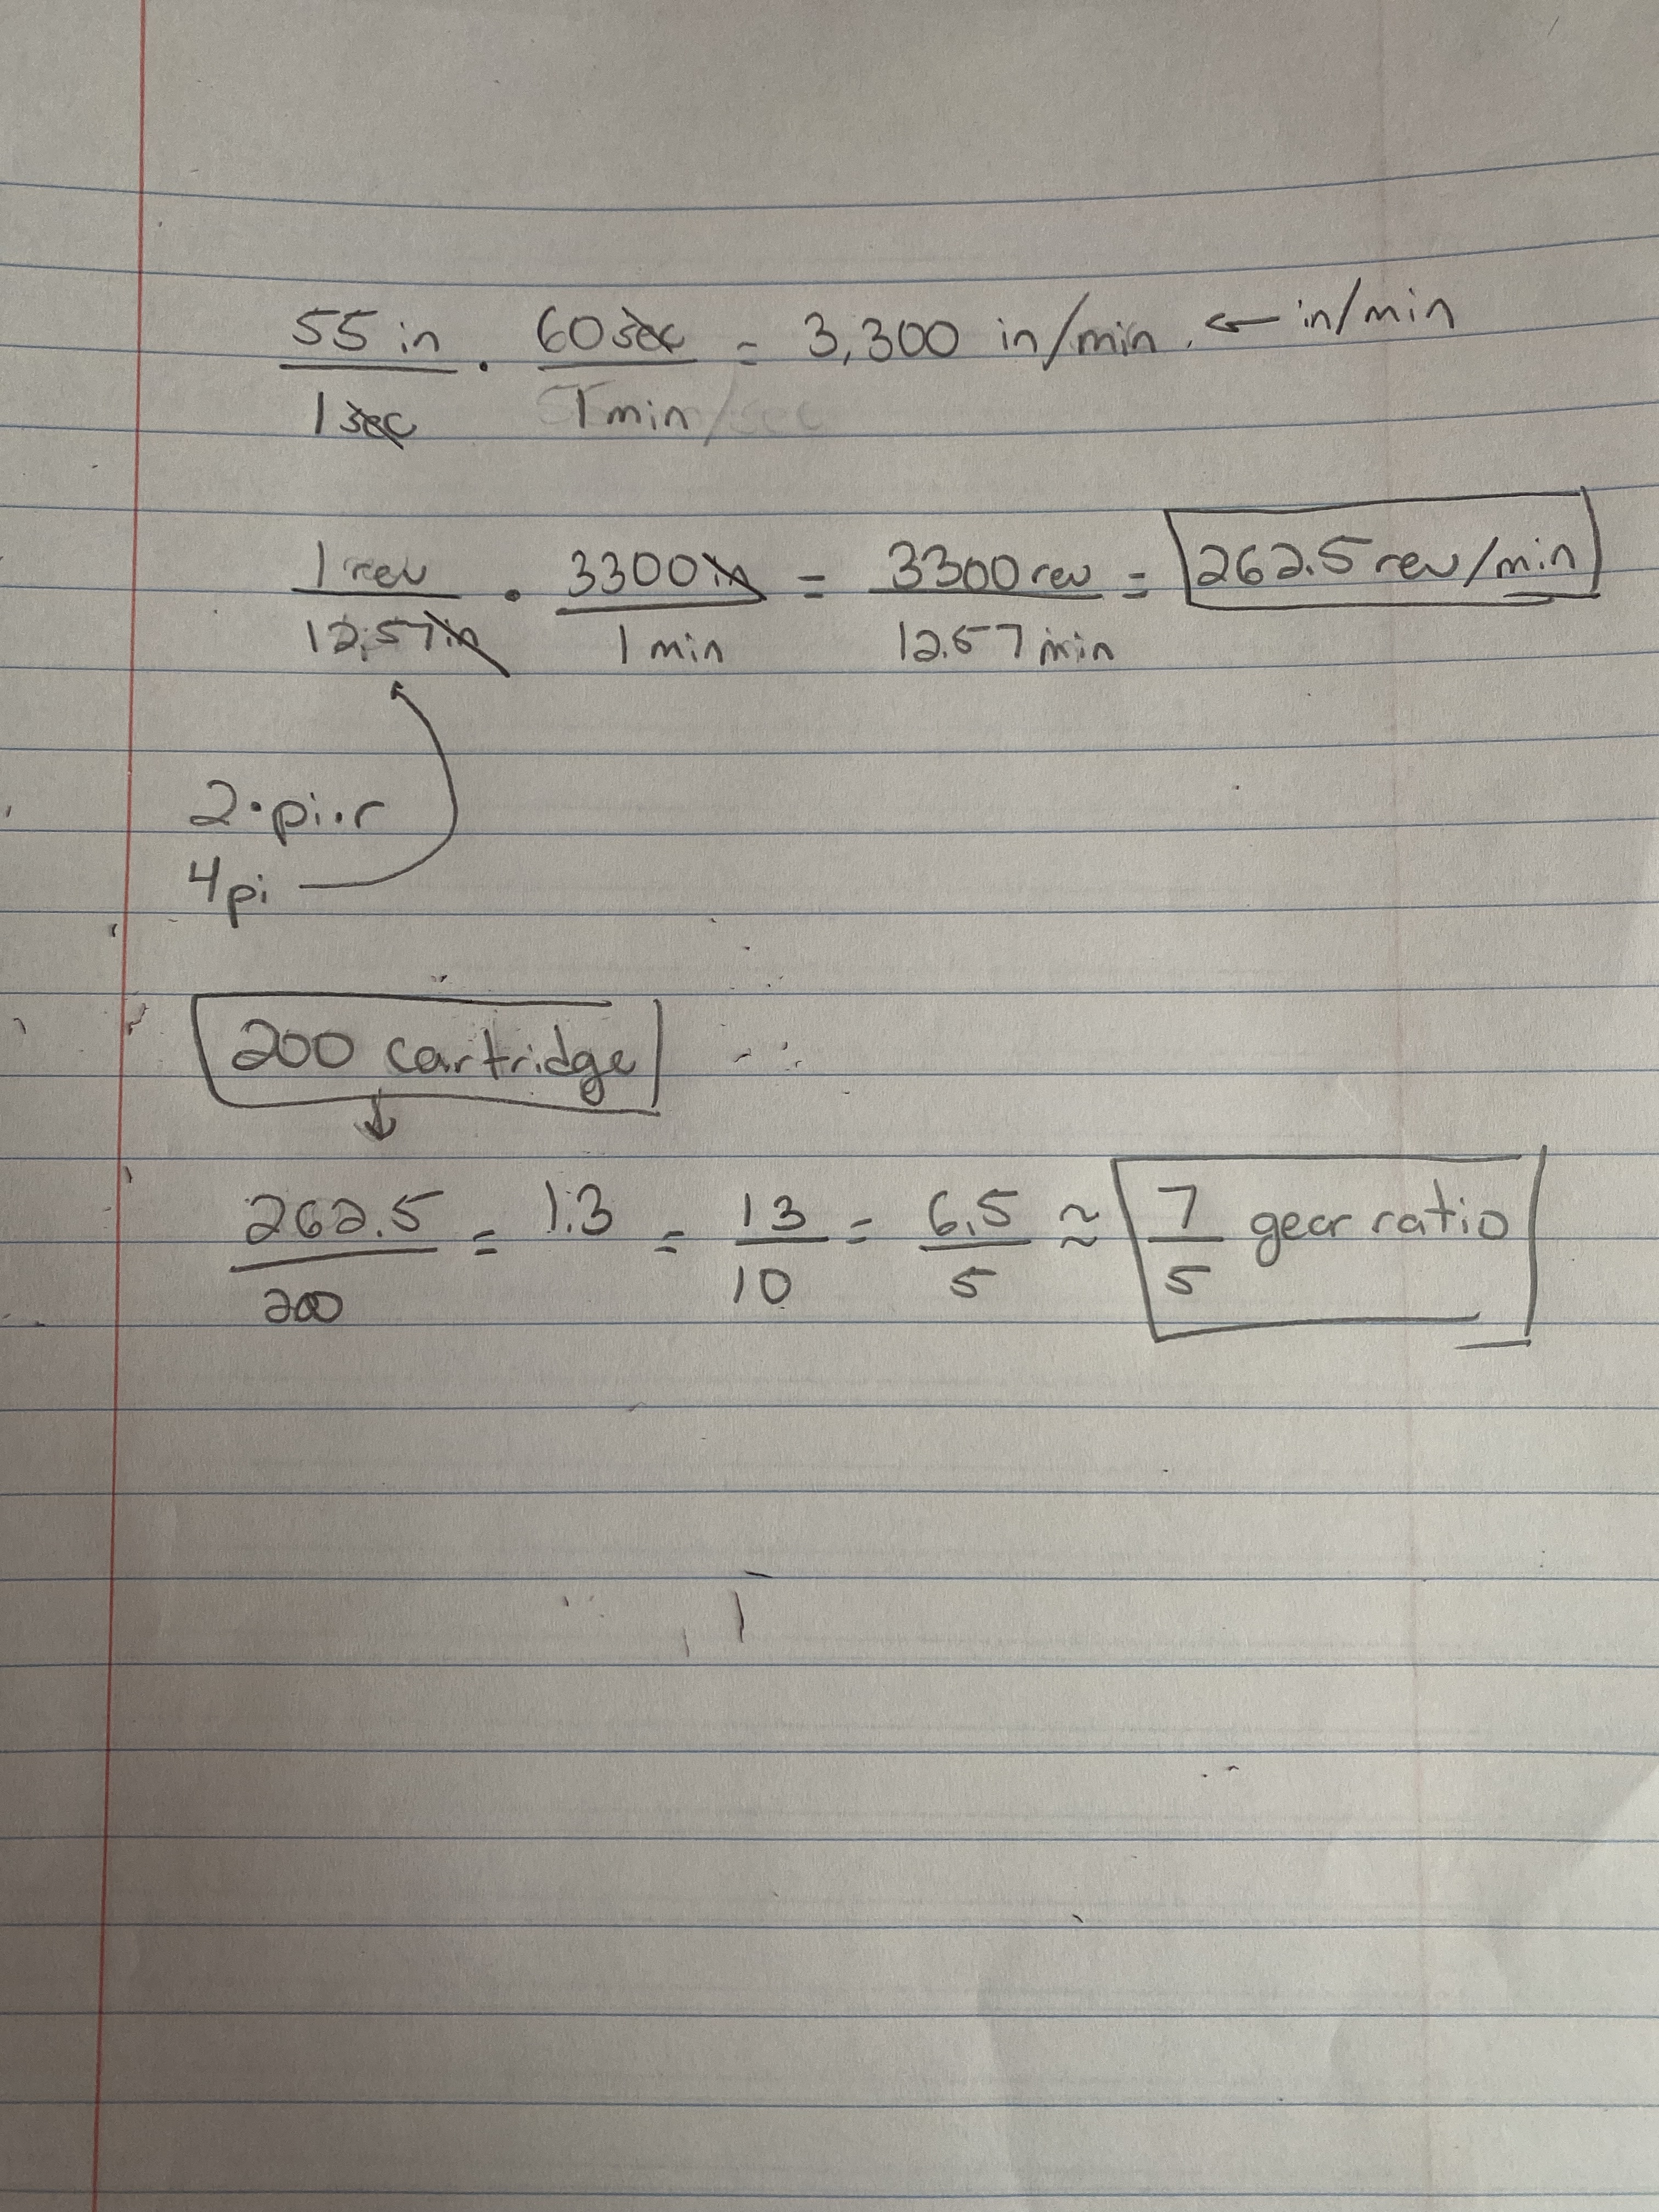 55 in / 1 sec · 60 sec / 1 min = 3,300 in/min. ← in/min
1 rev / 12.57 in · 3300 in / 1 min = 3300 rev / 12.57 min = 262.5 rev/min
2·pi·r
4pi
200 cartridge
↓
262.5 / 200 = 1.3 = 13 / 10 = 6.5 / 5 ≈ 7 / 5 gear ratio